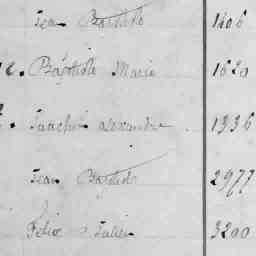 Jean Baptiste 1606
c. Baptiste Marie 1620
alexandre 1936
Jean Baptiste 2977
Felix Julien 3200